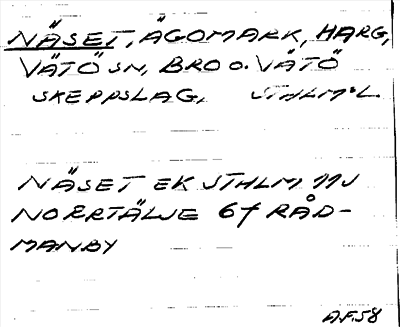 NÄSET, ÄGOMARK, HARG,
VÄTÖ SN, BRO O. VÄTÖ
SKEPPSLAG, STHLM:L.
NÄSET EK STHLM 11J
NORRTÄLJE 6f RÅD-
MANBY
A.F.58